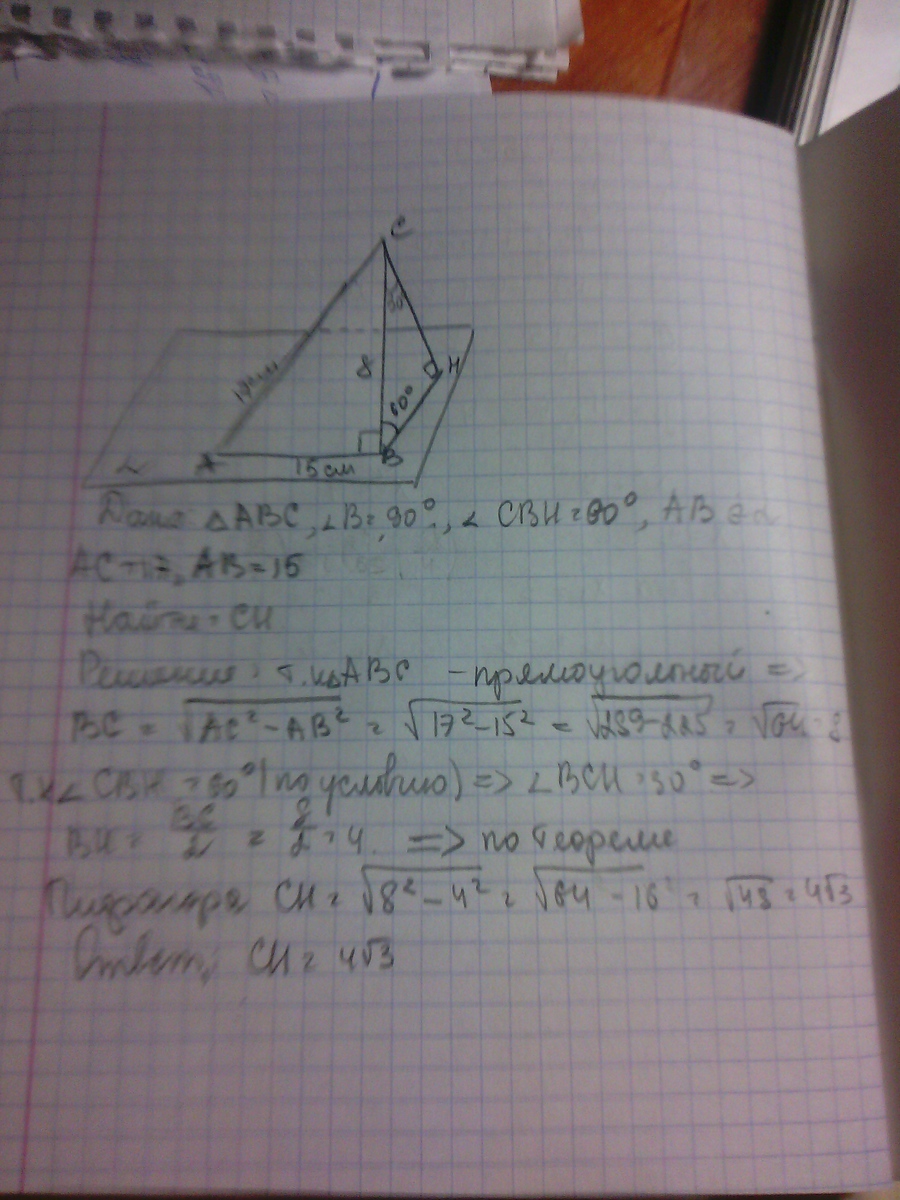 C
30
17см
8
H
60°
α A 15см B
Дано: △ABC, ∠B=90°, ∠CBH=60°, AB ∈ α
AC=17, AB=15
Найти: CH
Решение: т.к △ABC - прямоугольный =>
BC = √AC² - AB² = √17² - 15² = √289-225 = √64 = 8
т.к ∠CBH = 60° (по условию) => ∠BCH = 30° =>
BH = BC/2 = 8/2 = 4 => по теореме
Пифагора CH = √8² - 4² = √64 - 16 = √48 = 4√3
Ответ: CH = 4√3